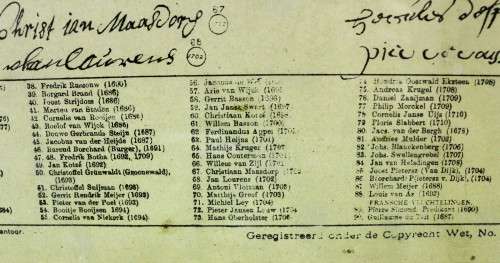 Christ ian Maasdorp
67
1712
68
1702
38. Fredrik Russouw (1690)
39. Borgard Brand (1686)
40. Joost Strijdom (1686)
41. Marten van Staden (1686)
42. Cornelis van Rooijen (1686)
43. Roelof van Wijk (1686)
44. Douwe Gerbrands Steijn (1687)
45. Jacobus van der Heijde (1687)
46. Barend Burchard (1691)
47. 48. Fredrik Botha (1692, 1709)
49. Jan Kotzé (1692)
50. Christoffel Grünwaldt (Groenewald), (1693)
51. Christoffel Snijman (1695)
52. Gerrit Hendrik Meijer (1692)
53. Pieter van der Poel (1693)
54. Rooitje Booijsen (1694)
55. Cornelis van Niekerk (1694)
56.
57. Arie van Wijk
58. Gerrit Basson
59. Jan Jansz Swart (1697)
60. Christiaan Kotzé
61. Willem Basson
62. Ferdinandus Appel
63. Paul Heijns (1701)
64. Mathijs Kruger (1701)
65. Hans Conterman (1701)
66. Willem van Zijl (1701)
67. Christiaan Maasdorp (1712)
68. Jan Lourens (1702)
69. Antoni Vlotman (1702)
70. Matthijs Greef (1702)
71. Michiel Ley (1704)
72. Pieter Jansen Louw (1704)
73. Hans Oberholster (1706)
74. Hendrik Oostwald Eksteen (1708)
75. Andreas Krugel (1708)
76. Daniel Zaaijman (1709)
77. Philip Morckel (1709)
78. Cornelis Janse Dijs (1710)
79. Floris Slabbert (1710)
80. Jacs. van der Bergh (1708)
81. Andries Mulder (1702)
82. Johs. Blanckenberg (1706)
83. Johs. Swellengrebel (1706)
84. Jan van Helsdingen (1708)
85. Joost Pietersz (Van Dijk), (1704)
86. Borchard P(ietersz v. Dijk), (1704)
87. Willem Meijer (1688)
88. Louis van As (1692)
FRANSCHE VLUCHTELINGEN.
89. Pierre Simond, Predikant (1699)
90. Guillaume du Toit (1687)
antoor.
Geregistreerd onder de Copyrecht Wet, No.